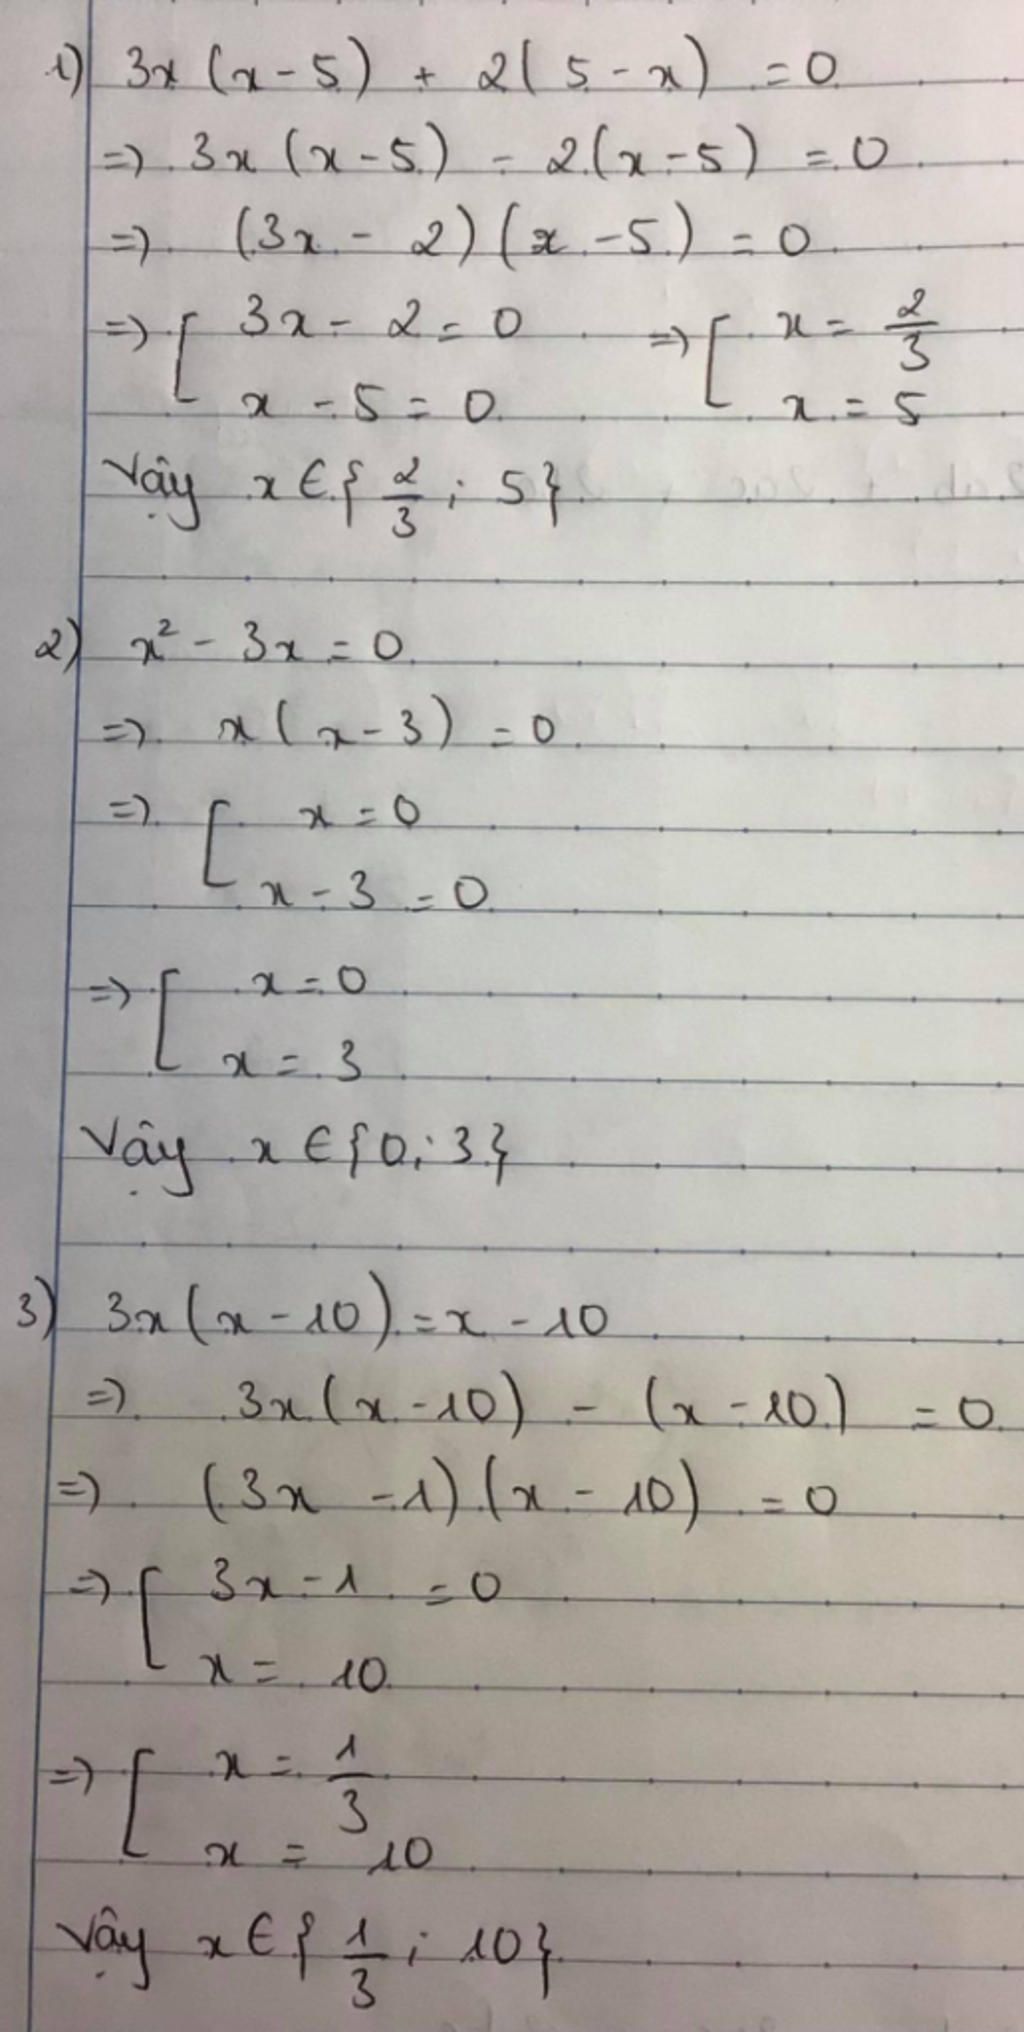 1) 3x (x - 5) + 2( 5 - x) = 0
=> 3x (x - 5) - 2(x - 5) = 0
=> (3x - 2) (x - 5) = 0
=> [ 3x - 2 = 0 => [ x = 2/3
x - 5 = 0 x = 5
Vậy x ∈ { 2/3 ; 5 }
2) x² - 3x = 0
=> x ( x - 3 ) = 0
=> [ x = 0
x - 3 = 0
=> [ x = 0
x = 3
Vậy x ∈ {0 ; 3}
3) 3x (x - 10) = x - 10
=> 3x (x - 10) - (x - 10) = 0
=> (3x - 1) (x - 10) = 0
=> [ 3x - 1 = 0
x = 10
=> [ x = 1/3
x = 10
Vậy x ∈ { 1/3 ; 10 }